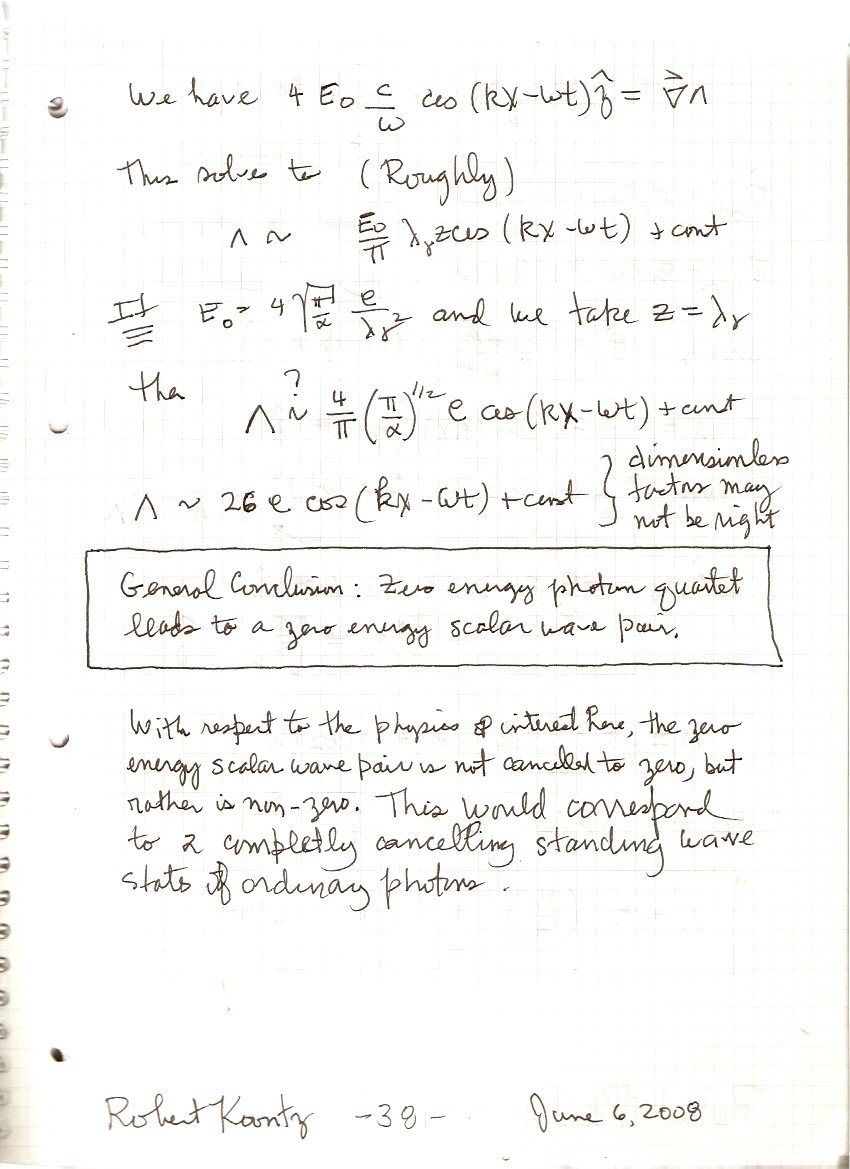 We have 4 E₀ c/ω cos (kx-ωt) ẑ = ∇⃗Λ
This solves to (Roughly)
Λ ~ E₀/π λᵧ z cos (kx-ωt) + cont
If E₀ = 4 √(π/α) e/λᵧ² and we take z = λᵧ
the
Λ ?~ 4/π (π/α)^1/2 e cos (kx-ωt) + cont
Λ ~ 26 e cos (kx-ωt) + const } dimensionless
factors may
not be right
General Conclusion: Zero energy photon quartet
leads to a zero energy scalar wave pair.
With respect to the physics of interest here, the zero
energy scalar wave pair is not cancelled to zero, but
rather is non-zero. This would correspond
to 2 completly cancelling standing wave
stats of ordinary photons.
Robert Koontz -38- June 6, 2008